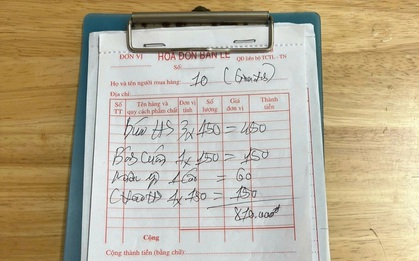 ĐƠN VỊ HÓA ĐƠN BÁN LẺ QĐ liên bộ TCTL - TN
Số:
Họ và tên người mua hàng: 10
Địa chỉ:
Số TT Tên hàng và quy cách phẩm chất Đơn vị tính Số lượng Giá đơn vị Thành tiền
Bún HS 3x150 = 450
1x150 = 150
= 60
Cháo HS 1x150 = 150
810.000đ
Cộng
Cộng thành tiền (bằng chữ):